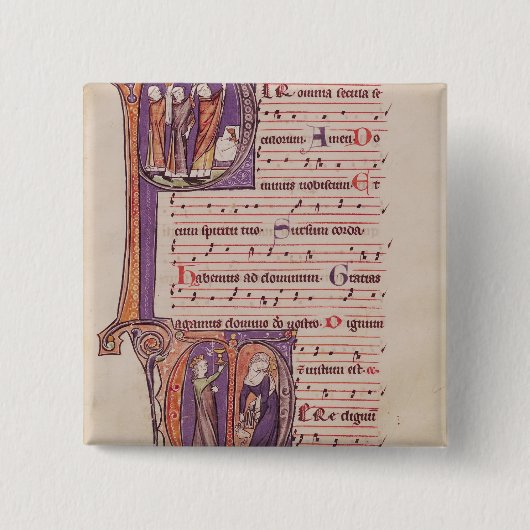 er omnia secula se
culorum. Amen. Do
minus vobiscum. Et
cum spiritu tuo. Sursum corda
Habemus ad dominum. Gratias
agamus domino deo nostro. Dignum
et iustum est.
ere dignum